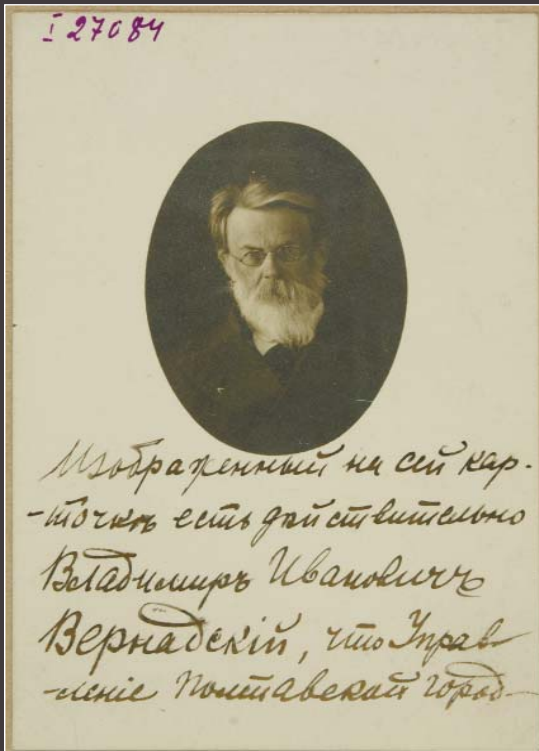 I 27084
Изображенный на сей кар-
-точкѣ есть действительно
Владимиръ Ивановичъ
Вернадскій, что Управ-
-леніе Полтавской Город-